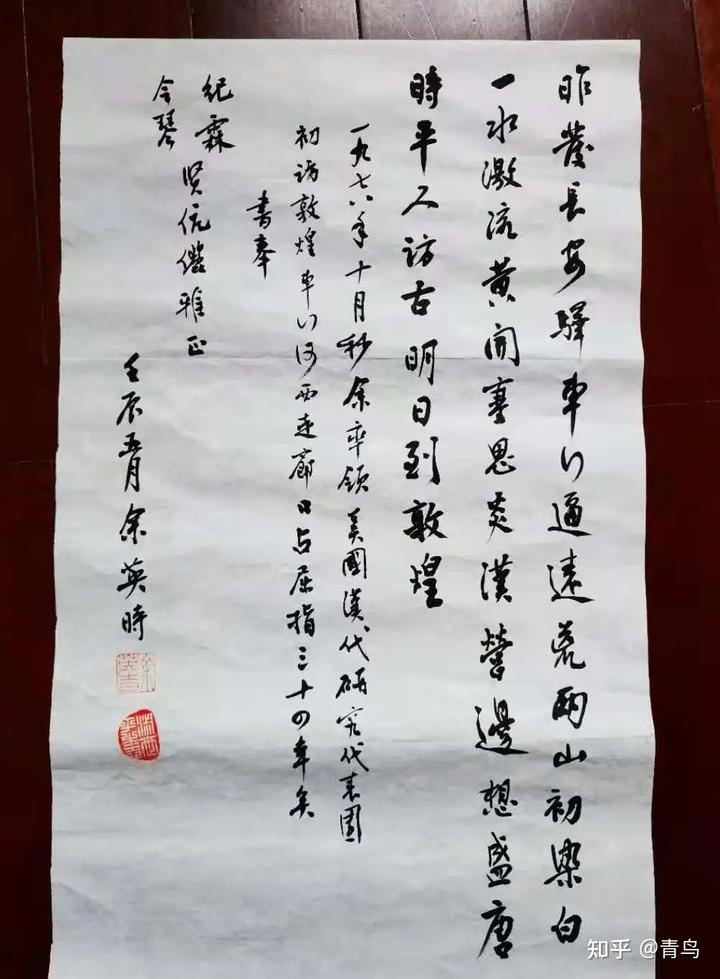 昨發長安驛車行逼遠荒兩山初染白
一水激流黄開塞思炎漢營邊想盛唐
時平人訪古明日到敦煌
一九七八年十月秒余率領美國漢代研究代表團
初訪敦煌車行河西走廊口占屈指三十四年矣
書奉
纪霖
令琴
贤伉儷雅正
壬辰五月余英時
知乎 @青鸟